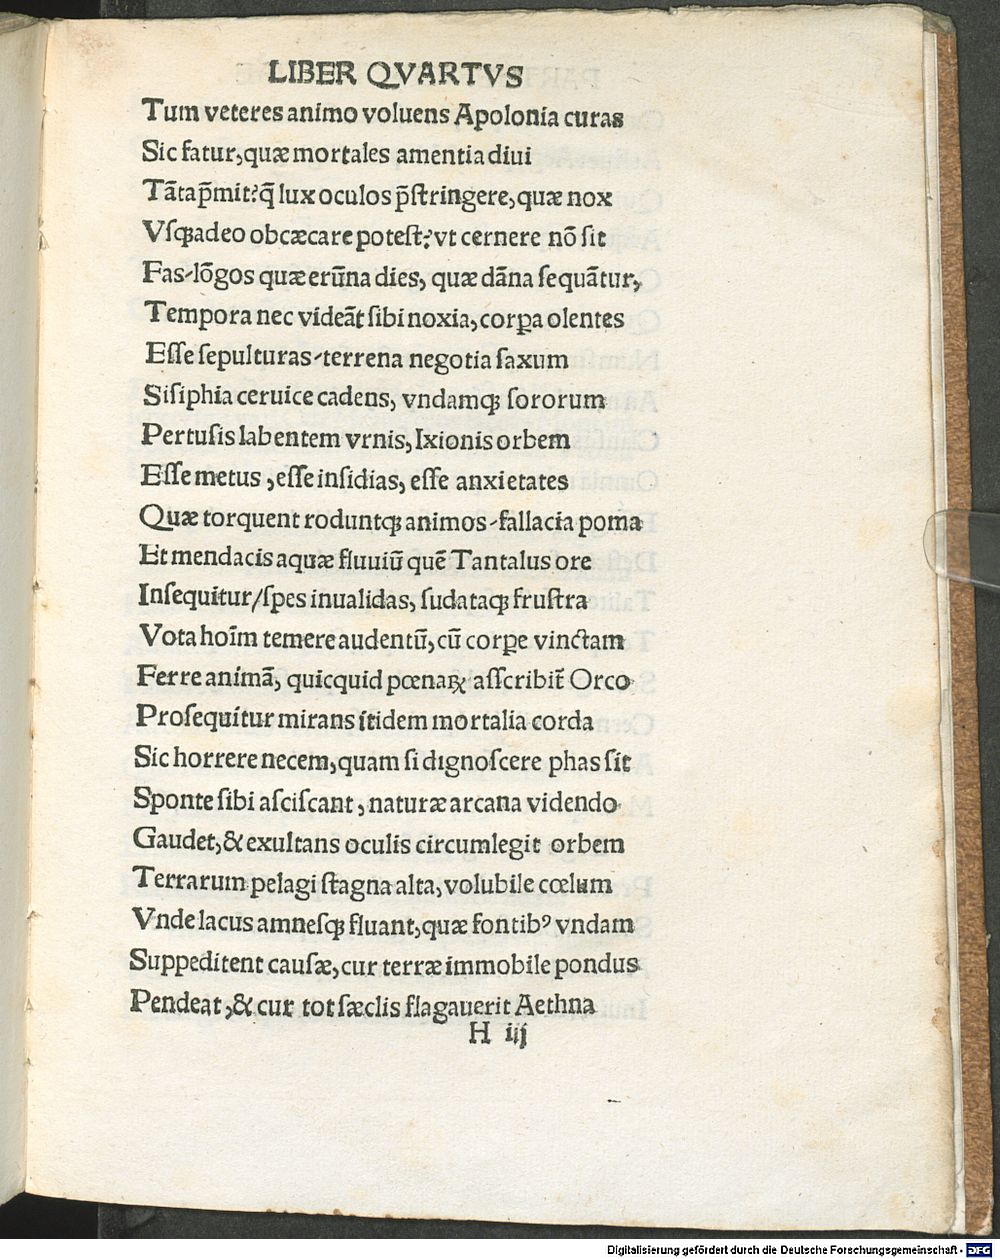 LIBER QVARTVS
Tum veteres animo voluens Apolonia curas
Sic fatur, quæ mortales amentia diui
Tãta p̃mit? q̃ lux oculos p̃stringere, quæ nox
Vsqꝫadeo obcæcare potest? vt cernere nõ sit
Fas-lõgos quæ erũna dies, quæ dãna sequãtur,
Tempora nec videãt sibi noxia, corꝑa olentes
Esse sepulturas-terrena negotia saxum
Sisiphia ceruice cadens, vndamqꝫ sororum
Pertusis labentem vrnis, Ixionis orbem
Esse metus, esse insidias, esse anxietates
Quæ torquent roduntqꝫ animos-fallacia poma
Et mendacis aquæ fluuiũ quẽ Tantalus ore
Insequitur/spes inualidas, sudataqꝫ frustra
Vota hoĩm temere audentũ, cũ corꝑe vinctam
Ferre animã, quicquid pœnaꝝ asscribit̃ Orco
Prosequitur mirans itidem mortalia corda
Sic horrere necem, quam si dignoscere phas sit
Sponte sibi asciscant, naturæ arcana videndo
Gaudet, & exultans oculis circumlegit orbem
Terrarum pelagi stagna alta, volubile cœlum
Vnde lacus amnesqꝫ fluant, quæ fontibꝰ vndam
Suppeditent causæ, cur terræ immobile pondus
Pendeat, & cur tot sæclis flagauerit Aethna
H iij
Digitalisierung gefördert durch die Deutsche Forschungsgemeinschaft - DFG